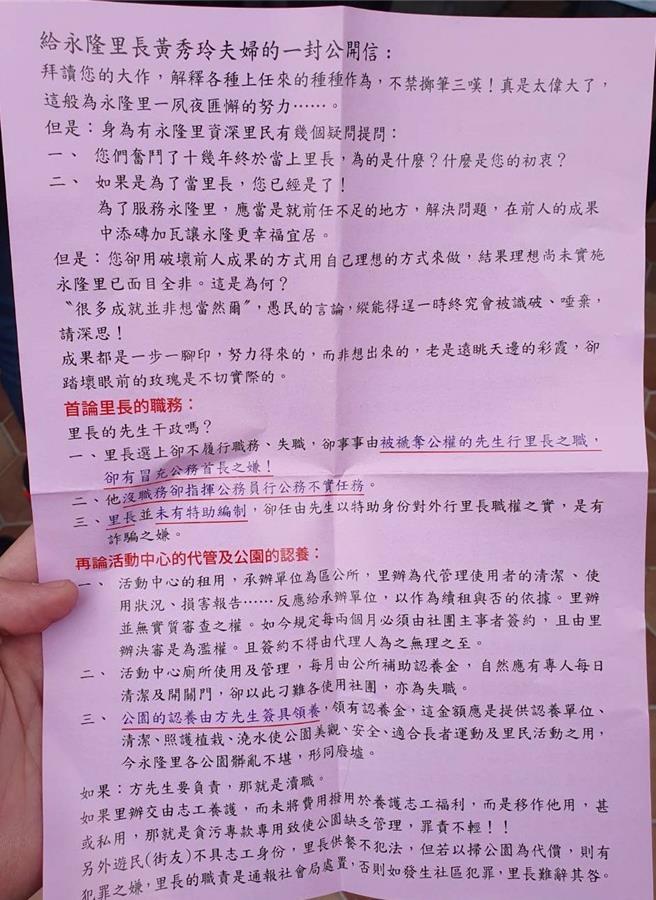 給永隆里長黃秀玲夫婦的一封公開信：
拜讀您的大作，解釋各種上任來的種種作為，不禁擲筆三嘆！真是太偉大了，
這般為永隆里一夙夜匪懈的努力⋯⋯。
但是：身為有永隆里資深里民有幾個疑問提問：
一、 您們奮鬥了十幾年終於當上里長，為的是什麼？什麼是您的初衷？
二、 如果是為了當里長，您已經是了！
為了服務永隆里，應當是就前任不足的地方，解決問題，在前人的成果
中添磚加瓦讓永隆更幸福宜居。
但是：您卻用破壞前人成果的方式用自己理想的方式來做，結果理想尚未實施
永隆里已面目全非。這是為何？
〝很多成就並非想當然爾〞，愚民的言論，縱能得逞一時終究會被識破、唾棄，
請深思！
成果都是一步一腳印，努力得來的，而非想出來的，老是遠眺天邊的彩霞，卻
踏壞眼前的玫瑰是不切實際的。
首論里長的職務：
里長的先生干政嗎？
一、里長選上卻不履行職務、失職，卻事事由被褫奪公權的先生行里長之職，
卻有冒充公務首長之嫌！
二、他沒職務卻指揮公務員行公務不實任務。
三、里長並未有特助編制，卻任由先生以特助身份對外行里長職權之實，是有
詐騙之嫌。
再論活動中心的代管及公園的認養：
一、 活動中心的租用，承辦單位為區公所，里辦為代管理使用者的清潔、使
用狀況、損害報告⋯⋯反應給承辦單位，以作為續租與否的依據。里辦
並無實質審查之權。如今規定每兩個月必須由社團主事者簽約，且由里
辦決審是為濫權。且簽約不得由代理人為之無理之至。
二、 活動中心廁所使用及管理，每月由公所補助認養金，自然應有專人每日
清潔及開關門，卻以此刁難各使用社團，亦為失職。
三、 公園的認養由方先生簽具領養，領有認養金，這金額應是提供認養單位、
清潔、照護植栽、澆水使公園美觀、安全、適合長者運動及里民活動之用，
今永隆里各公園髒亂不堪，形同廢墟。
如果：方先生要負責，那就是瀆職。
如果里辦交由志工養護，而未將費用撥用於養護志工福利，而是移作他用，甚
或私用，那就是貪污專款專用致使公園缺乏管理，罪責不輕！！
另外遊民(街友)不具志工身份，里長供餐不犯法，但若以掃公園為代價，則有
犯罪之嫌，里長的職責是通報社會局處置，否則如發生社區犯罪，里長難辭其咎。